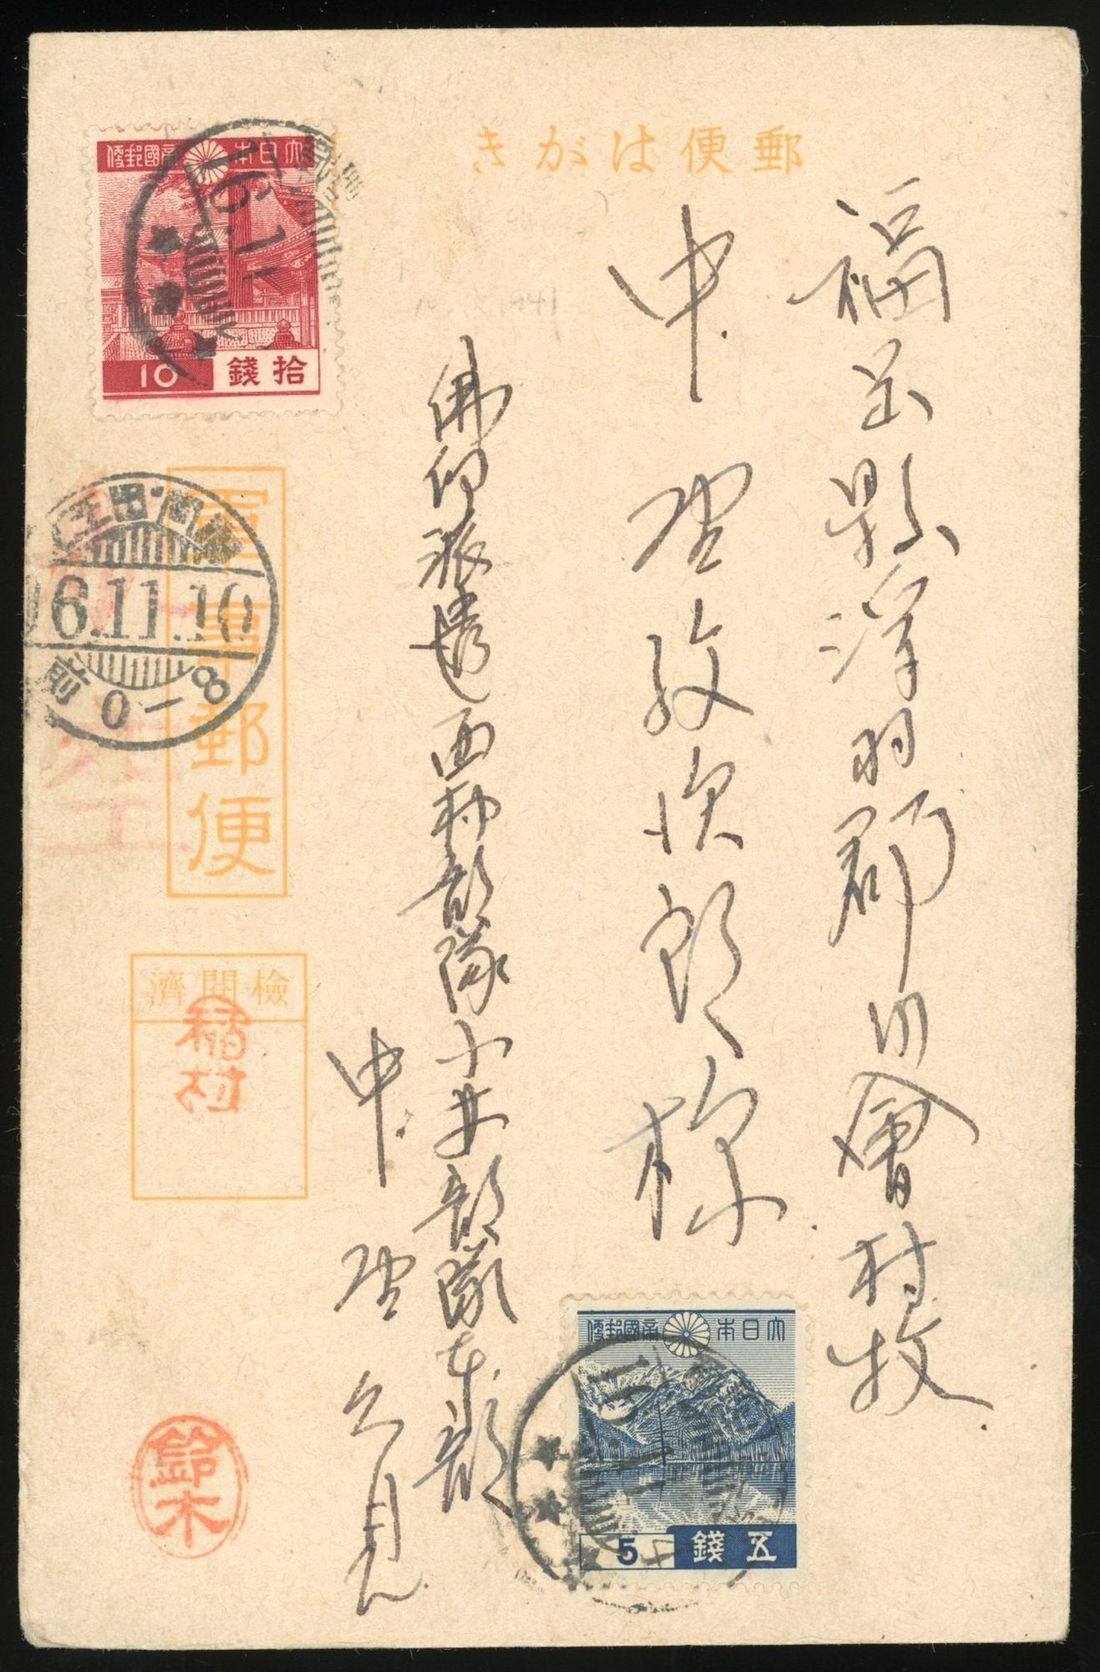 郵便はがき
大日本帝國郵便
拾錢
10
福井縣洋羽郡川會村牧
中野紋次郎様
佛印派遣西村部隊小林部隊本部
中野久見
軍事郵便
16.11.10
前0-8
檢閲濟
稲村
鈴木
大日本帝國郵便
五錢
5